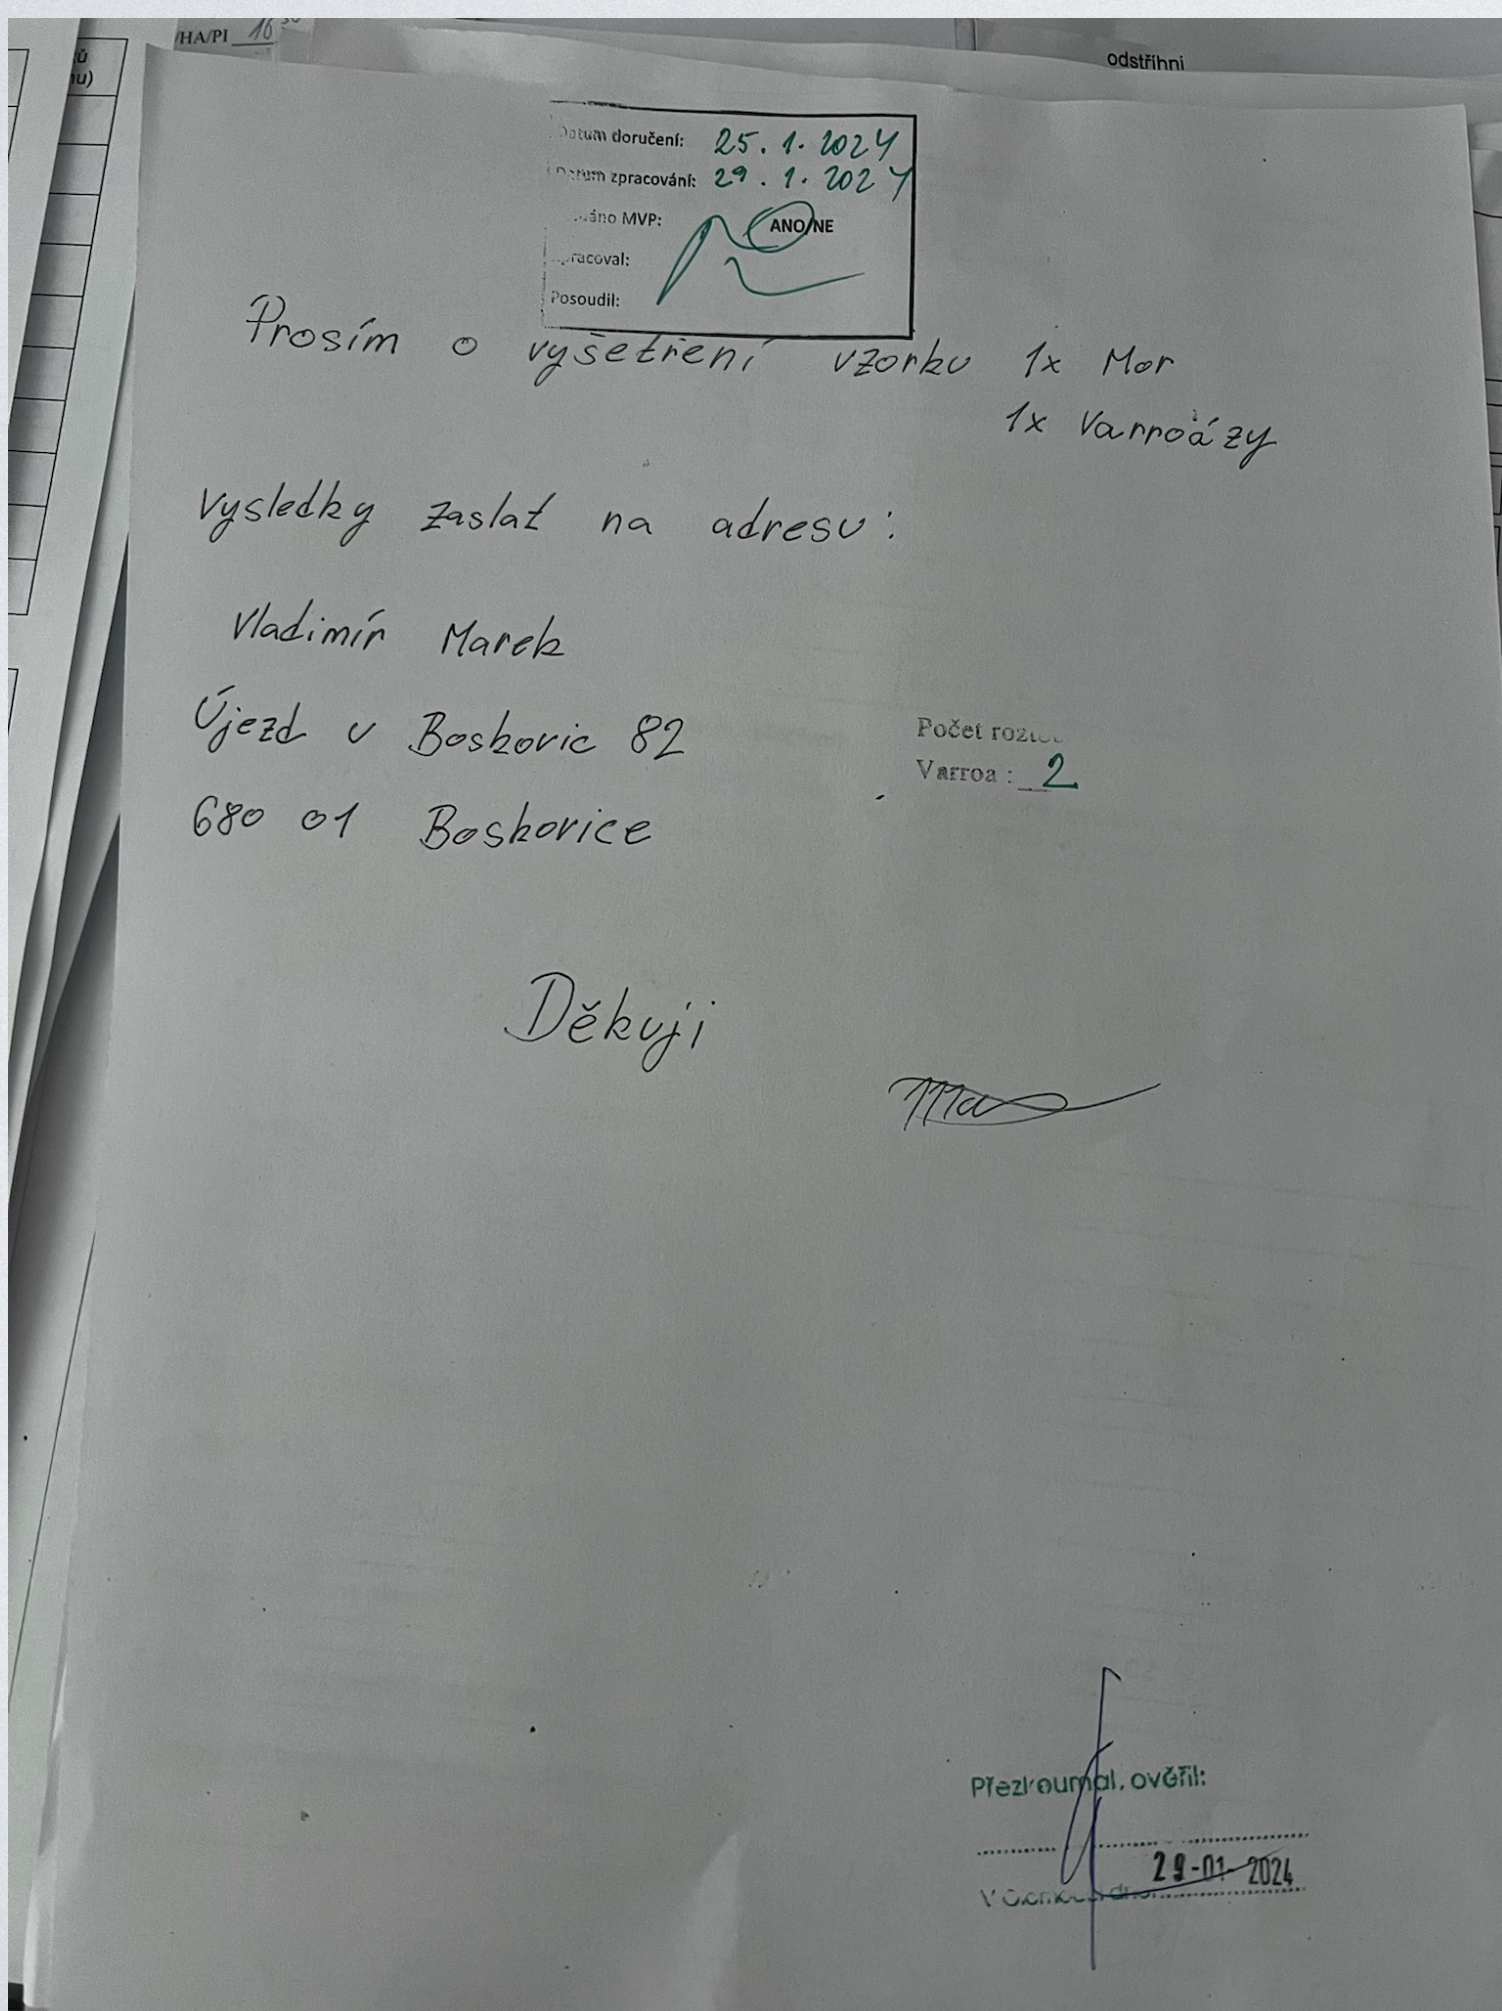 /HA/PI 16 30
ů
nu)
odstřihni
Datum doručení: 25. 1. 2024
Datum zpracování: 29. 1. 2024
áno MVP: ANO/NE
racoval:
Posoudil:
Prosím o vyšetření vzorku 1x Mor
1x Varroázy
Vysledky zaslat na adresu:
Vladimír Marek
Újezd u Boskovic 82
680 01 Boskovice
Počet rozto
Varroa : 2
Děkuji
Přezkoumal, ověřil:
29-01-2024